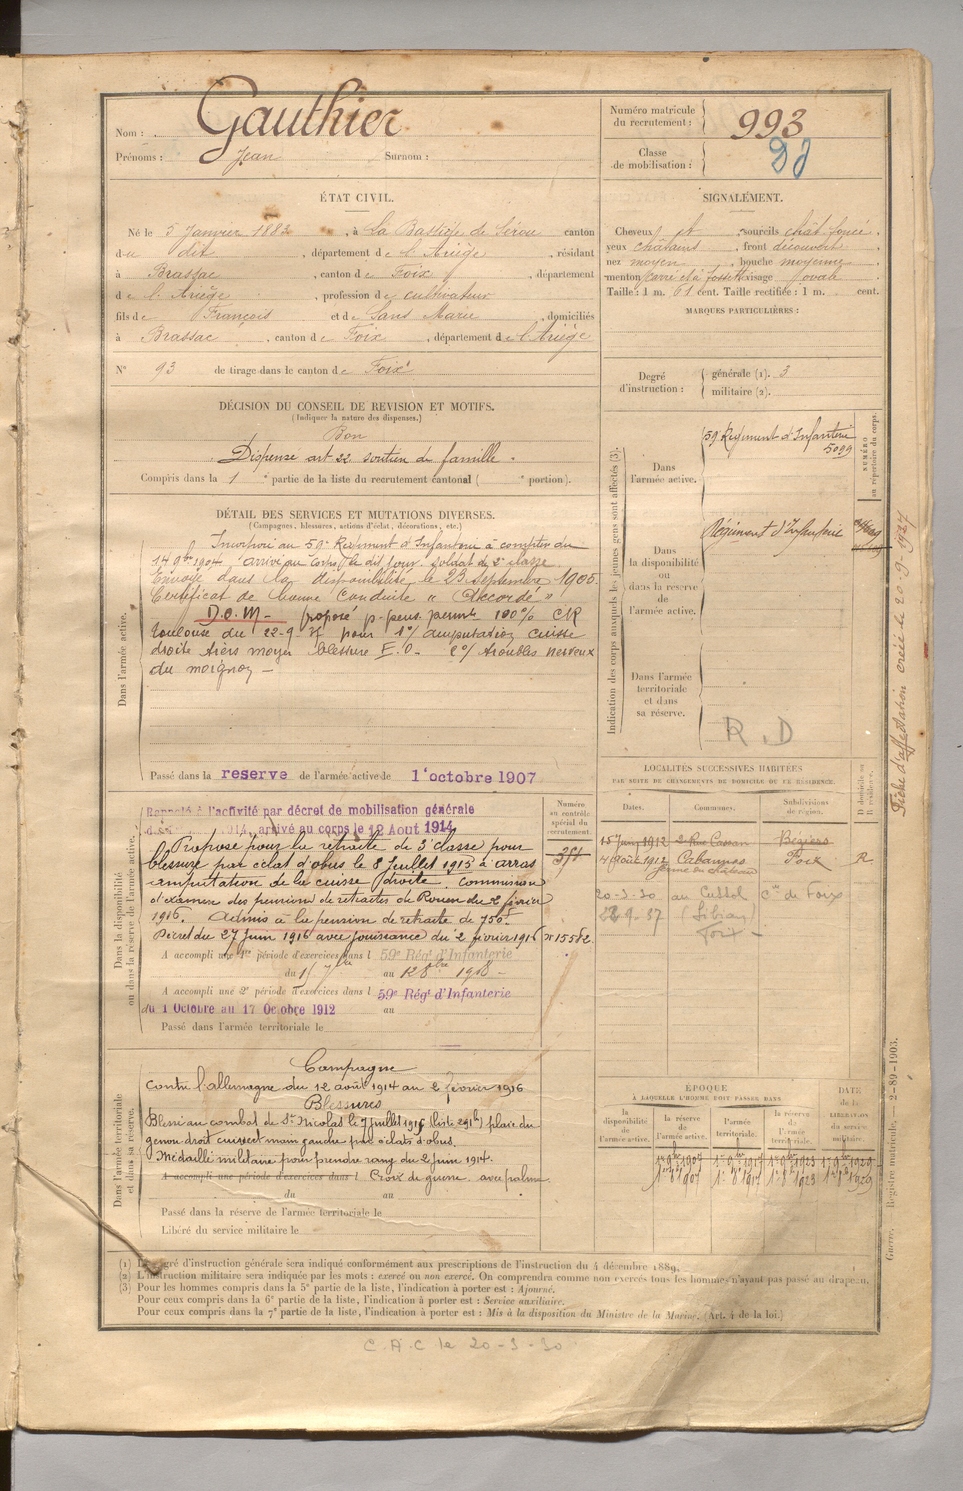 Nom : Gauthier
Prénoms : Jean Surnom :
Numéro matricule du recrutement : 993
Classe de mobilisation :
ÉTAT CIVIL.
Né le 5 Janvier 1882, à La Bastide de Sérou canton
du dit, département de l'Ariège, résidant
à Brassac, canton de Foix, département
de l'Ariège, profession de cultivateur
fils de François et de Sans Marie, domiciliés
à Brassac, canton de Foix, département de l'Ariège
N° 93 de tirage dans le canton de Foix
SIGNALÉMENT.
Cheveux et sourcils chât foncé.
yeux châtains, front découvert
nez moyen, bouche moyenne
menton carré et à fossette visage ovale
Taille : 1 m. 61 cent. Taille rectifiée : 1 m. cent.
MARQUES PARTICULIÈRES :
Degré d'instruction : générale (1). 3
militaire (2).
DÉCISION DU CONSEIL DE REVISION ET MOTIFS.
(Indiquer la nature des dispenses.)
Bon
Dispensé art 22 soutien de famille.
Compris dans la 1e partie de la liste du recrutement cantonal ( e portion).
DÉTAIL DES SERVICES ET MUTATIONS DIVERSES.
(Campagnes, blessures, actions d'éclat, décorations, etc.)
Dans l'armée active.
Incorporé au 59e Régiment d'Infanterie à compter du
14 9bre 1904 arrivé au corps le dit jour soldat de 2e classe
Envoyé dans la disponibilité le 23 septembre 1905
Certificat de bonne conduite "Accordé"
D.O.M- proposé p-pens. permte 100% CR
Toulouse du 22-9 pour 1°/ amputation cuisse
droite tiers moyen blessure E.O- 2°/ troubles nerveux
du moignon -
Passé dans la reserve de l'armée active de 1er octobre 1907
Indication des corps auxquels les jeunes gens sont affectés (3).
Dans l'armée active.
59 Régiment d'Infanterie
5099
NUMÉRO au répertoire du corps.
Dans la disponibilité ou dans la réserve de l'armée active.
Régiment d'Infanterie
Dans l'armée territoriale et dans sa réserve.
R.D
Fiche d'affectation créée le 20.9.1927
LOCALITÉS SUCCESSIVES HABITÉES
PAR SUITE DE CHANGEMENTS DE DOMICILE OU DE RÉSIDENCE.
Dates. Communes. Subdivisions de région. D domicile ou R résidence.
15 juin 1912 2 Rue Cassan Béziers
4 Août 1912 Cabannes Foix R
ferme du château
20-3-30 au Cussol cne de Foix
9-37
Foix -
Dans la disponibilité ou dans la réserve de l'armée active.
Numéro au contrôle spécial du recrutement.
Rappelé à l'activité par décret de mobilisation générale
1914, arrivé au corps le 12 Aout 1914
Proposé pour la retraite de 3e classe pour
blessure par éclat d'obus le 8 Juillet 1915 à arras
amputation de la cuisse droite. Commission
d'examen des pensions de retraites de Rouen du 2 février
1916. Admis à la pension de retraite de 750f
Décret du 27 Juin 1916 avec jouissance du 2 février 1916 N° 15582
A accompli une 1re période d'exercices dans l 59e Régt d'Infanterie
du au
A accompli une 2e période d'exercices dans l 59e Régt d'Infanterie
du 1 Octobre au 17 Octobre 1912 au
Passé dans l'armée territoriale le
Dans l'armée territoriale et dans sa réserve.
Campagne
Contre l'allemagne du 12 août 1914 au 2 février 1916
Blessures
Blessé au combat de St Nicolas le 7 juillet 1915 plaie du
genou droit cuisse et main gauche par éclats d'obus.
Médaille militaire pour prendre rang du 2 juin 1914.
A accompli une période d'exercices dans l Croix de guerre avec palme
du au
Passé dans la réserve de l'armée territoriale le
Libéré du service militaire le
ÉPOQUE
À LAQUELLE L'HOMME DOIT PASSER DANS
la disponibilité de l'armée active. la réserve de l'armée active. l'armée territoriale. la réserve de l'armée territoriale. DATE de la LIBÉRATION du service militaire.
1er 8bre 1907 1er 8bre 1923
Guerre. — Registre matricule. — 2-89-1903.
(1) Le degré d'instruction générale sera indiqué conformément aux prescriptions de l'instruction du 4 décembre 1889.
(2) L'instruction militaire sera indiquée par les mots : exercé ou non exercé. On comprendra comme non exercés tous les hommes n'ayant pas passé au drapeau.
(3) Pour les hommes compris dans la 5e partie de la liste, l'indication à porter est : Ajourné.
Pour ceux compris dans la 6e partie de la liste, l'indication à porter est : Service auxiliaire.
Pour ceux compris dans la 7e partie de la liste, l'indication à porter est : Mis à la disposition du Ministre de la Marine. (Art. 4 de la loi.)
C.A.C le 20-3-30